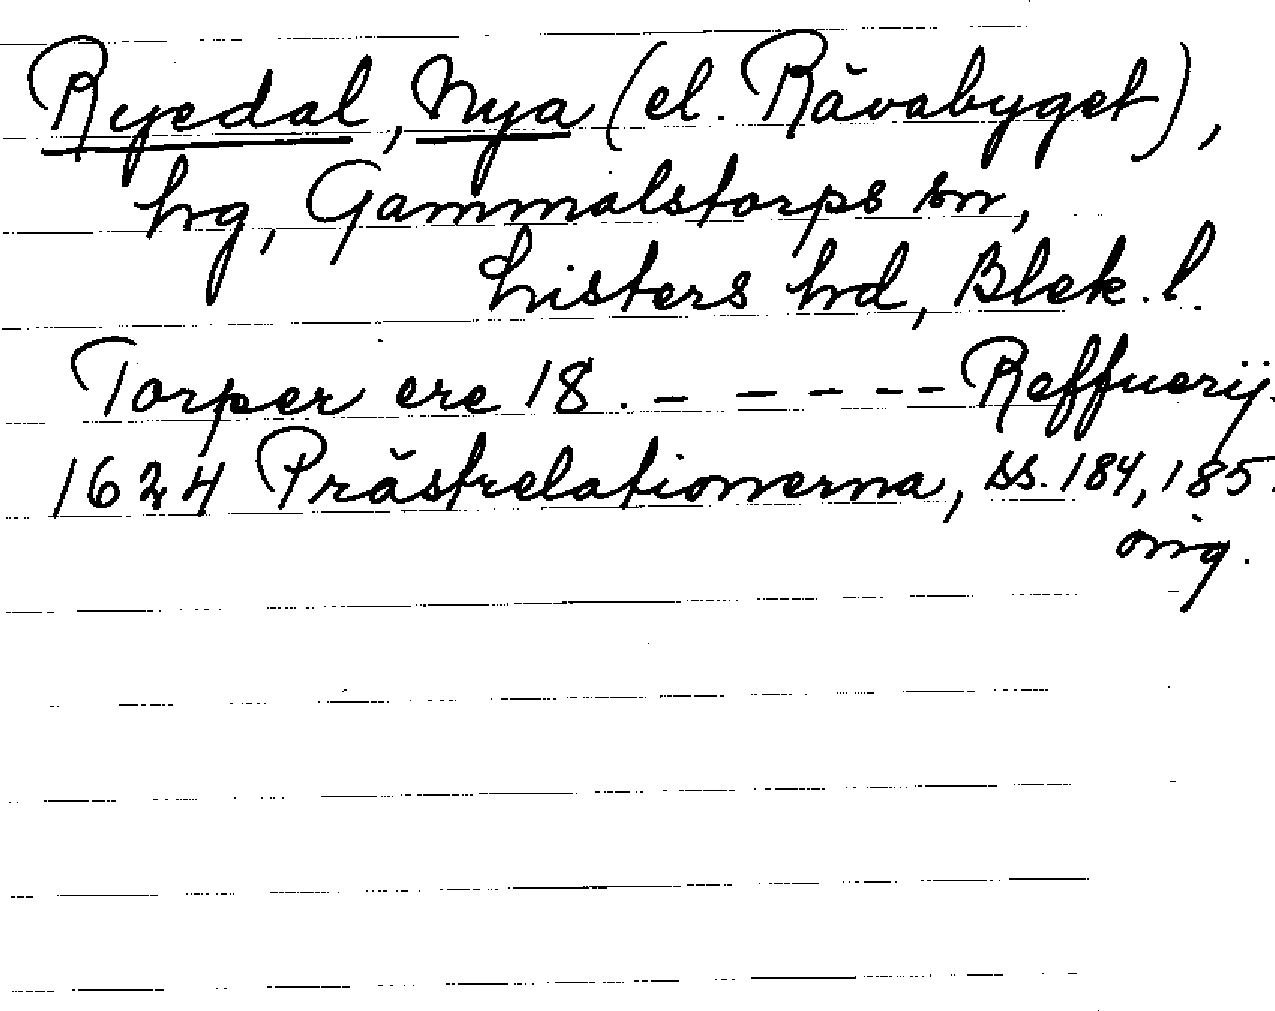 Ryedal, Nya (el. Rävabyget),
hg, Gammalstorps sn,
Listers hd, Blek. l.
Torper ere 18. – – – – – Reffuerij.
1624 Prästrelationerna, ss. 184, 185.
orig.